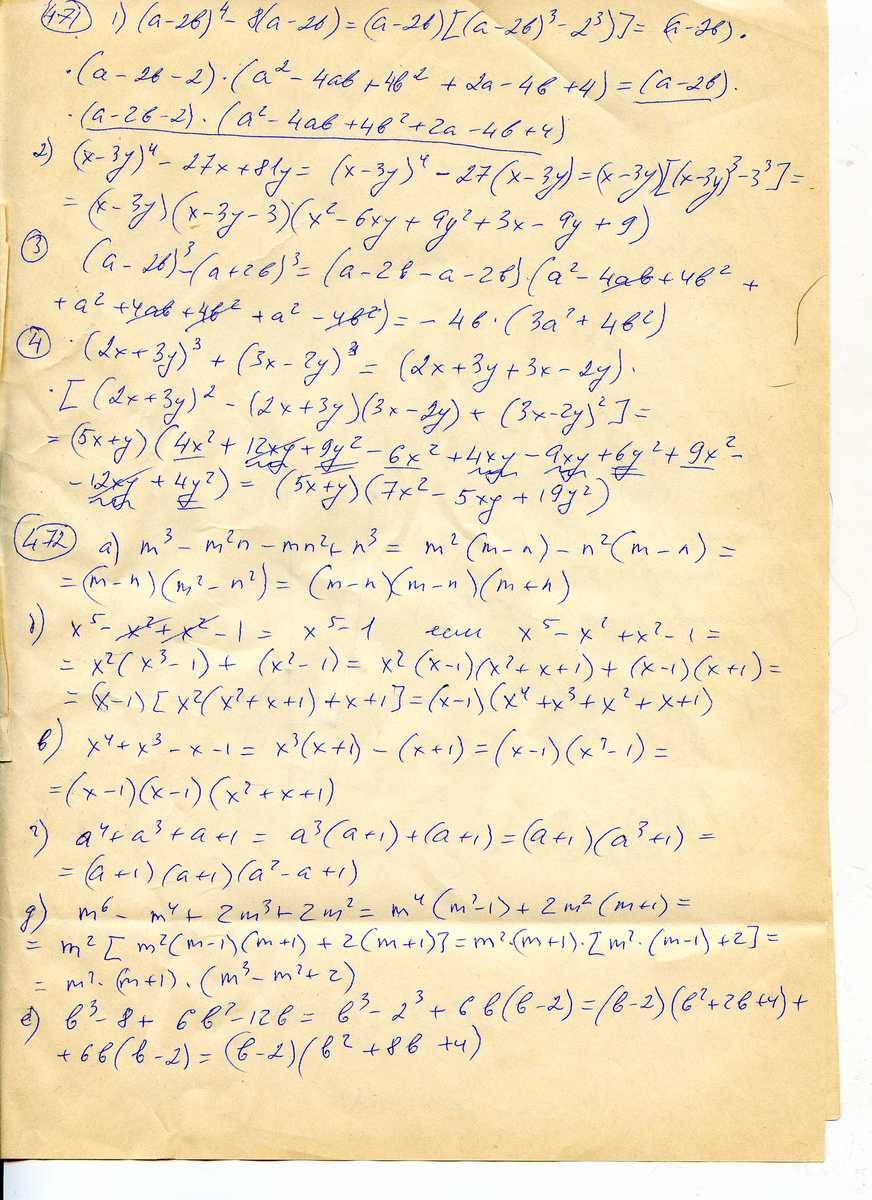 471 1) (a-2b)⁴ - 8(a-2b) = (a-2b)[(a-2b)³-2³)] = (a-2b)·
·(a-2b-2)·(a²-4ab+4b²+2a-4b+4) = (a-2b)·
·(a-2b-2)·(a²-4ab+4b²+2a-4b+4)
2) (x-3y)⁴ - 27x+81y = (x-3y)⁴ - 27(x-3y) = (x-3y)[(x-3y)³-3³] =
= (x-3y)(x-3y-3)(x²-6xy+9y²+3x-9y+9)
3 (a-2b)³-(a+2b)³ = (a-2b-a-2b)·(a²-4ab+4b²+
+a²+4ab+4b²+a²-4b²) = -4b·(3a²+4b²)
4 (2x+3y)³ + (3x-2y)³ = (2x+3y+3x-2y)·
·[(2x+3y)² - (2x+3y)(3x-2y) + (3x-2y)²] =
= (5x+y)(4x²+12xy+9y²-6x²+4xy-9xy+6y²+9x²-
-12xy+4y²) = (5x+y)(7x²-5xy+19y²)
472 а) m³-m²n-mn²+n³ = m²(m-n)-n²(m-n) =
= (m-n)(m²-n²) = (m-n)(m-n)(m+n)
б) x⁵-x²+x²-1 = x⁵-1 если x⁵-x²+x²-1 =
= x²(x³-1)+(x²-1) = x²(x-1)(x²+x+1)+(x-1)(x+1) =
= (x-1)[x²(x²+x+1)+x+1] = (x-1)(x⁴+x³+x²+x+1)
в) x⁴+x³-x-1 = x³(x+1)-(x+1) = (x-1)(x³-1) =
= (x-1)(x-1)(x²+x+1)
г) a⁴+a³+a+1 = a³(a+1)+(a+1) = (a+1)(a³+1) =
= (a+1)(a+1)(a²-a+1)
д) m⁶-m⁴+2m³+2m² = m⁴(m²-1)+2m²(m+1) =
= m²[m²(m-1)(m+1)+2(m+1)] = m²·(m+1)·[m²·(m-1)+2] =
= m²·(m+1)·(m³-m²+2)
е) b³-8+6b²-12b = b³-2³+6b(b-2) = (b-2)(b²+2b+4)+
+6b(b-2) = (b-2)(b²+8b+4)